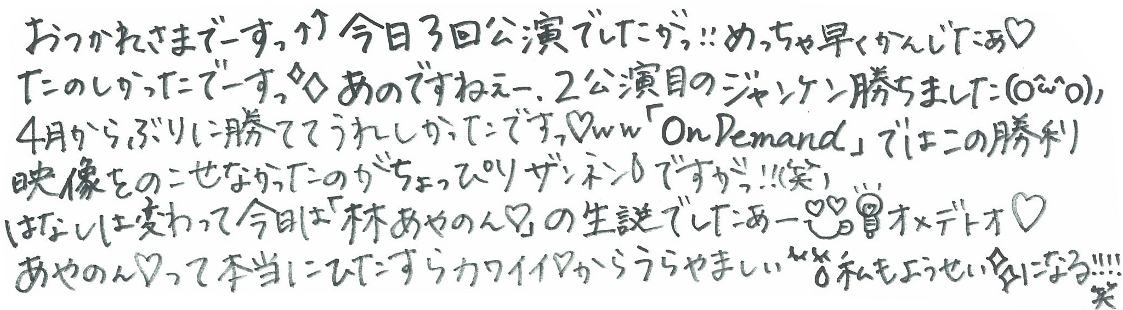 おつかれさまでーすっ↑↑今日3回公演でしたがっ!!めっちゃ早くかんじたぁ♡
たのしかったでーすっ◇◇あのですねぇー、2公演目のジャンケン勝ちました(o^w^o)ノ
4月からぶりに勝ててうれしかったですっ♡ww「OnDemand」ではこの勝利
映像をのこせなかったのがちょっぴりザンネンですがっ!!(笑)
はなしは変わって今日は「林あやのん♡」の生誕でしたぁーオメデトオ♡
あやのん♡って本当にひたすらカワイイ♡からうらやましい私もようせいになる!!!!
笑